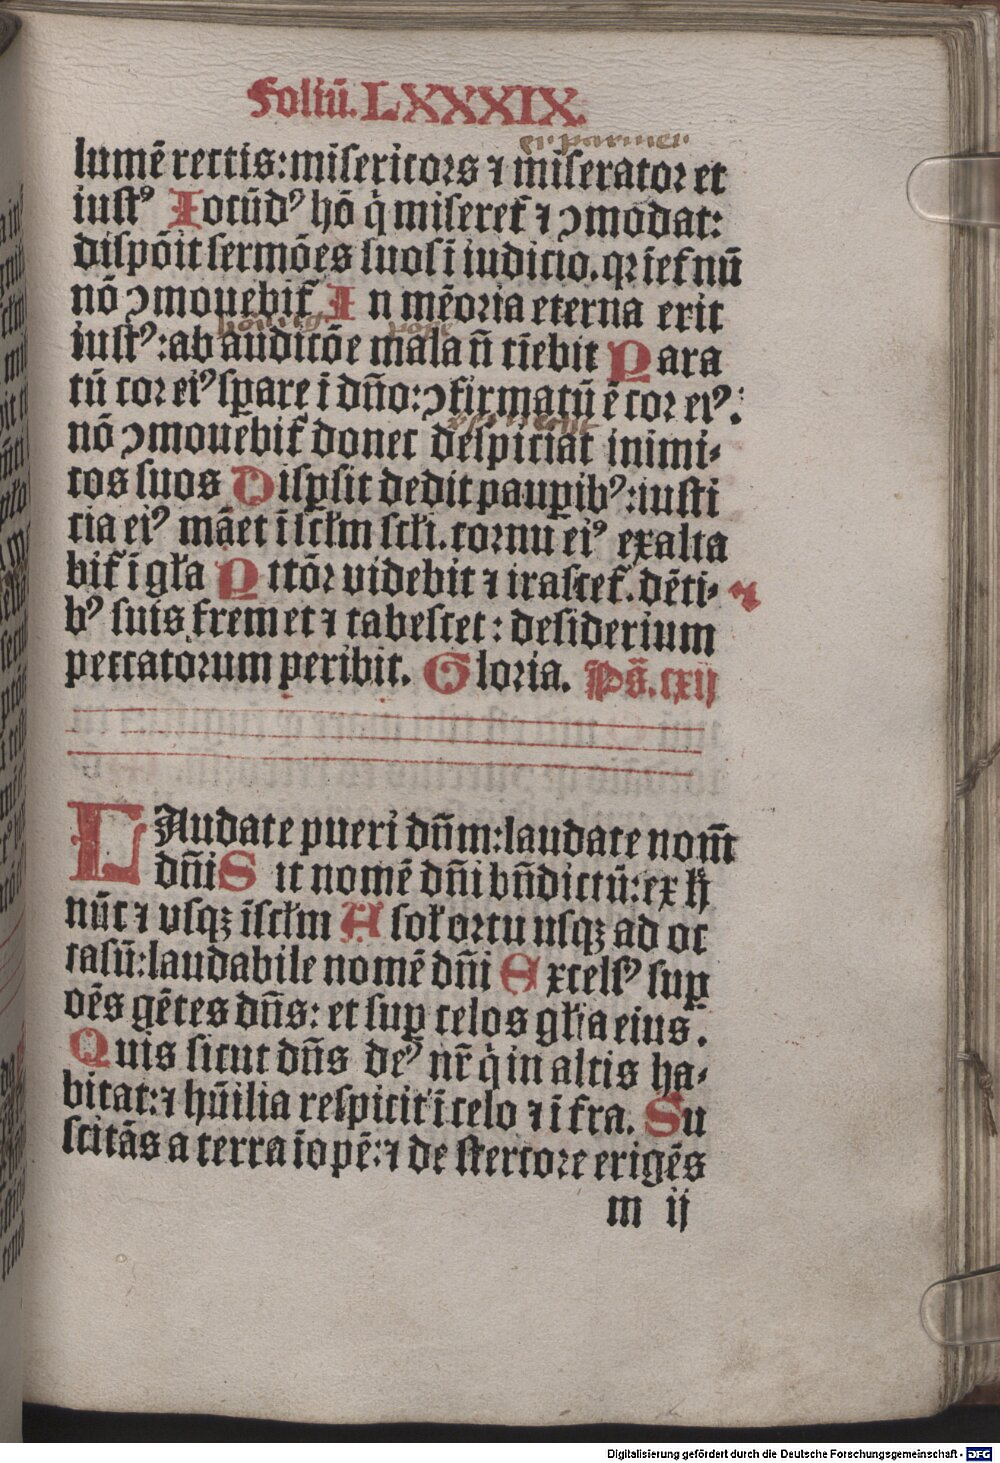 Foliū. LXXXIX.
lumē rectis: misericors ⁊ miserator et
iustꝰ Iocūdꝰ hō q̇ miseret᷑ ⁊ ꝯmodat:
dispōit sermōes suos ī iudicio. qꝛ īet᷑nū
nō ꝯmouebit᷑ In mēoria eterna erit
iustꝰ: ab auditōe mala ñ tīebit Para
tū cor eiꝰ sꝑare ī dño: ꝯfirmatū ē cor eiꝰ:
nō ꝯmouebit᷑ donec despiciat inimi-
cos suos Disꝑsit dedit pauꝑibꝰ: iusti
cia eiꝰ māet ī scl̄m scl̄i. cornu eiꝰ exalta
bit᷑ ī gl̄a Pctōr videbit ⁊ irascet᷑. dēti-
bꝰ suis fremet ⁊ tabescet: desiderium
peccatorum peribit. Gloria. Ps̄. cxij
LAudate pueri dñm: laudate nom̄
dñi Sit nomē dñi bñdictū: ex h̄
nūc ⁊ vsqꝫ ī scl̄m A sol̄ ortu usqꝫ ad oc
casū: laudabile nomē dñi Excelsꝰ suꝑ
oēs gētes dñs: et suꝑ celos gl̄ia eius.
Quis sicut dñs deꝰ nr̄ q̇ in altis ha-
bitat: ⁊ hūilia respicit ī celo ⁊ ī t᷑ra. Su
scitās a terra īopē: ⁊ de stercore erigēs
m ij
Digitalisierung gefördert durch die Deutsche Forschungsgemeinschaft - DFG